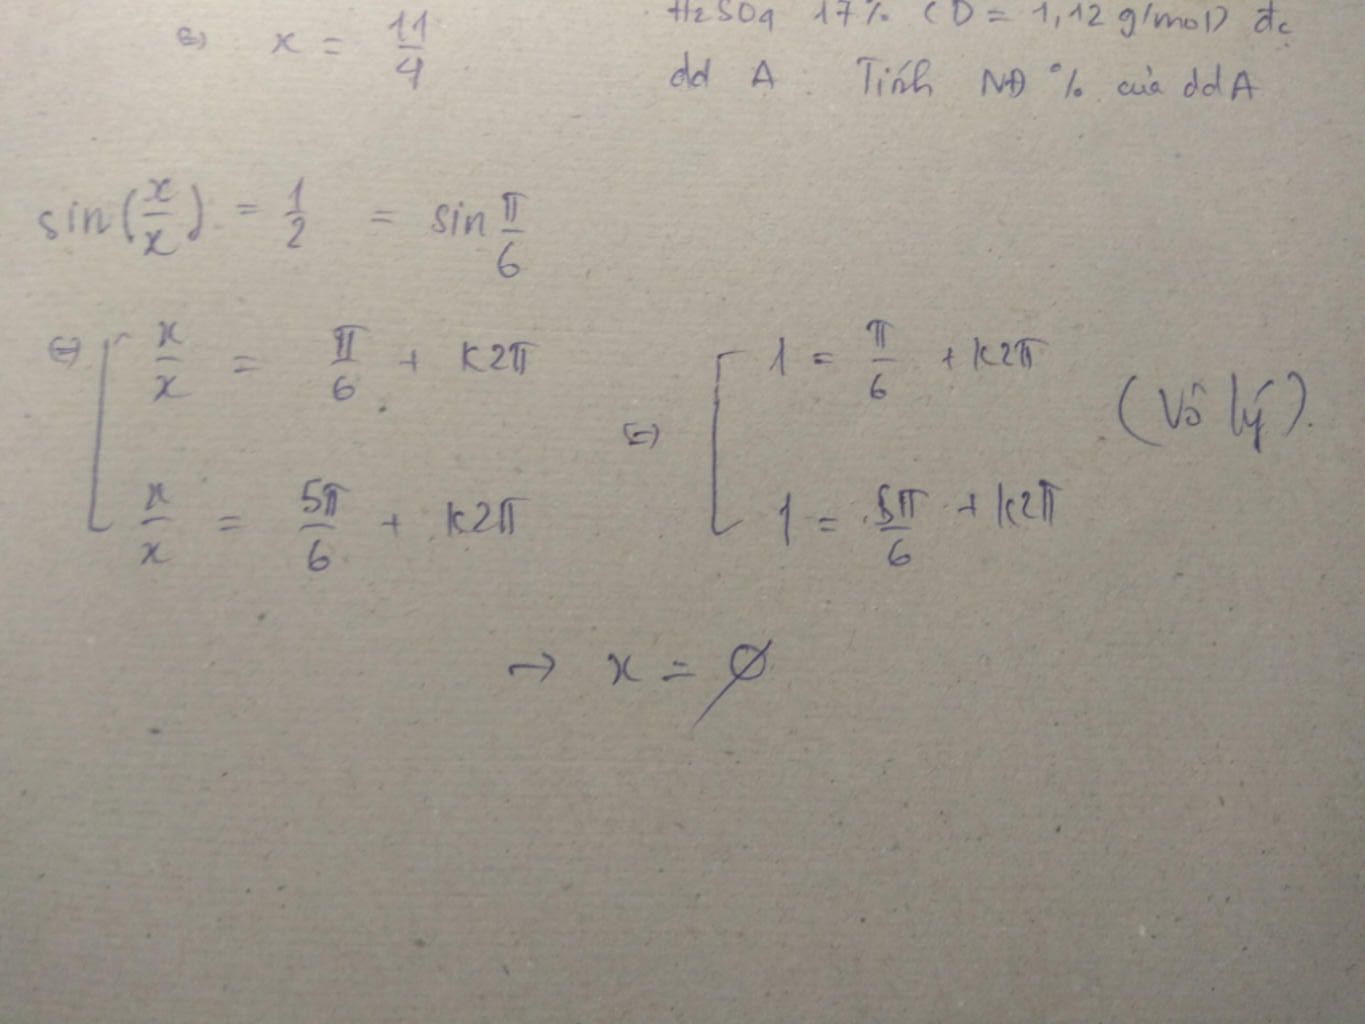 ⇔ x = 11/4
H2SO4 17% (D = 1,12 g/mol) đc
dd A. Tính NĐ % của dd A
sin(x/x) = 1/2 = sin π/6
⇔ [ x/x = π/6 + k2π ⇔ [ 1 = π/6 + k2π (Vô lý).
x/x = 5π/6 + k2π 1 = 5π/6 + k2π
→ x = ∅